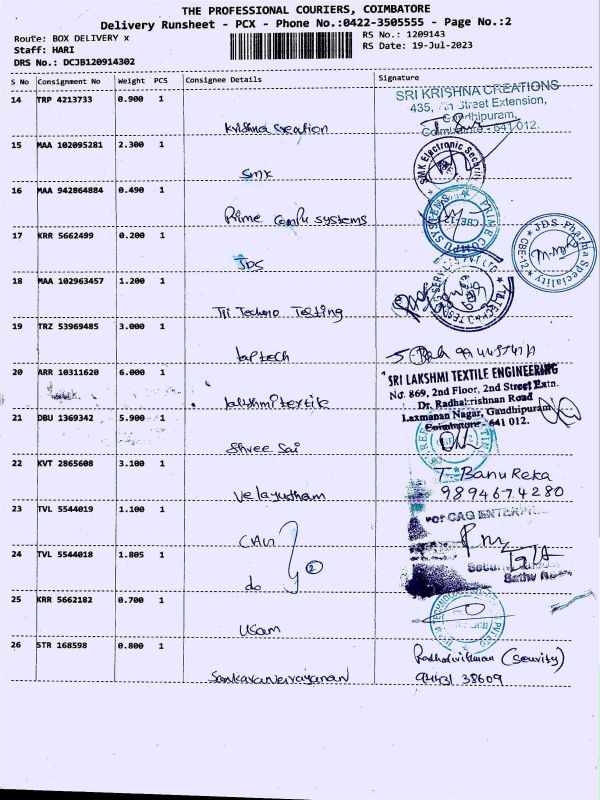 THE PROFESSIONAL COURIERS, COIMBATORE
Delivery Runsheet - PCX - Phone No.:0422-3505555 - Page No.:2
Route: BOX DELIVERY x
RS No.: 1209143
Staff: HARI
RS Date: 19-Jul-2023
DRS No.: DCJB120914302
S No Consignment No Weight PCS Consignee Details Signature
14 TRP 4213733 0.900 1
Krishna Creation
SRI KRISHNA CREATIONS
Street Extension,
Gandhipuram,
Coimbatore - 641 012.
15 MAA 102095281 2.300 1
SMK
SMK Electronic Security
16 MAA 942864884 0.490 1
Prime Compu systems
PRIME COMPU SYSTEMS
CBE-12
17 KRR 5662499 0.200 1
JDS
JDS Pharma Speciality
CBE-12
18 MAA 102963457 1.200 1
Tri Techno Testing
19 TRZ 53969485 3.000 1
taptech
20 ARR 10311620 6.000 1
lakshmi textile
SRI LAKSHMI TEXTILE ENGINEERING
No. 869, 2nd Floor, 2nd Street Extn.
Dr. Radhakrishnan Road
Laxmanan Nagar, Gandhipuram
Coimbatore - 641 012.
21 DBU 1369342 5.900 1
Shree Sai
22 KVT 2865608 3.100 1
Velayudham
T. Banu Reka
9894674280
23 TVL 5544019 1.100 1
For CAG ENTERPR
24 TVL 5544018 1.805 1
do
2
25 KRR 5662182 0.700 1
Usam
26 STR 168598 0.800 1
Sankaranarayanan
(Security)
94431 38609